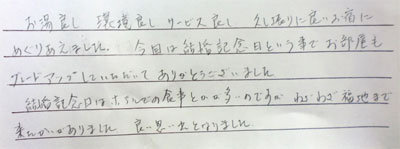 お湯良し 環境良し サービス良し 久し振りに良いお宿に
めぐりあえました。 今回は結婚記念日という事でお部屋も
グレードアップしていただいて ありがとうございました
結婚記念日はホテルでの食事とかが多いのですが わざわざ 福地まで
来たかいがありました 良い思い出となりました